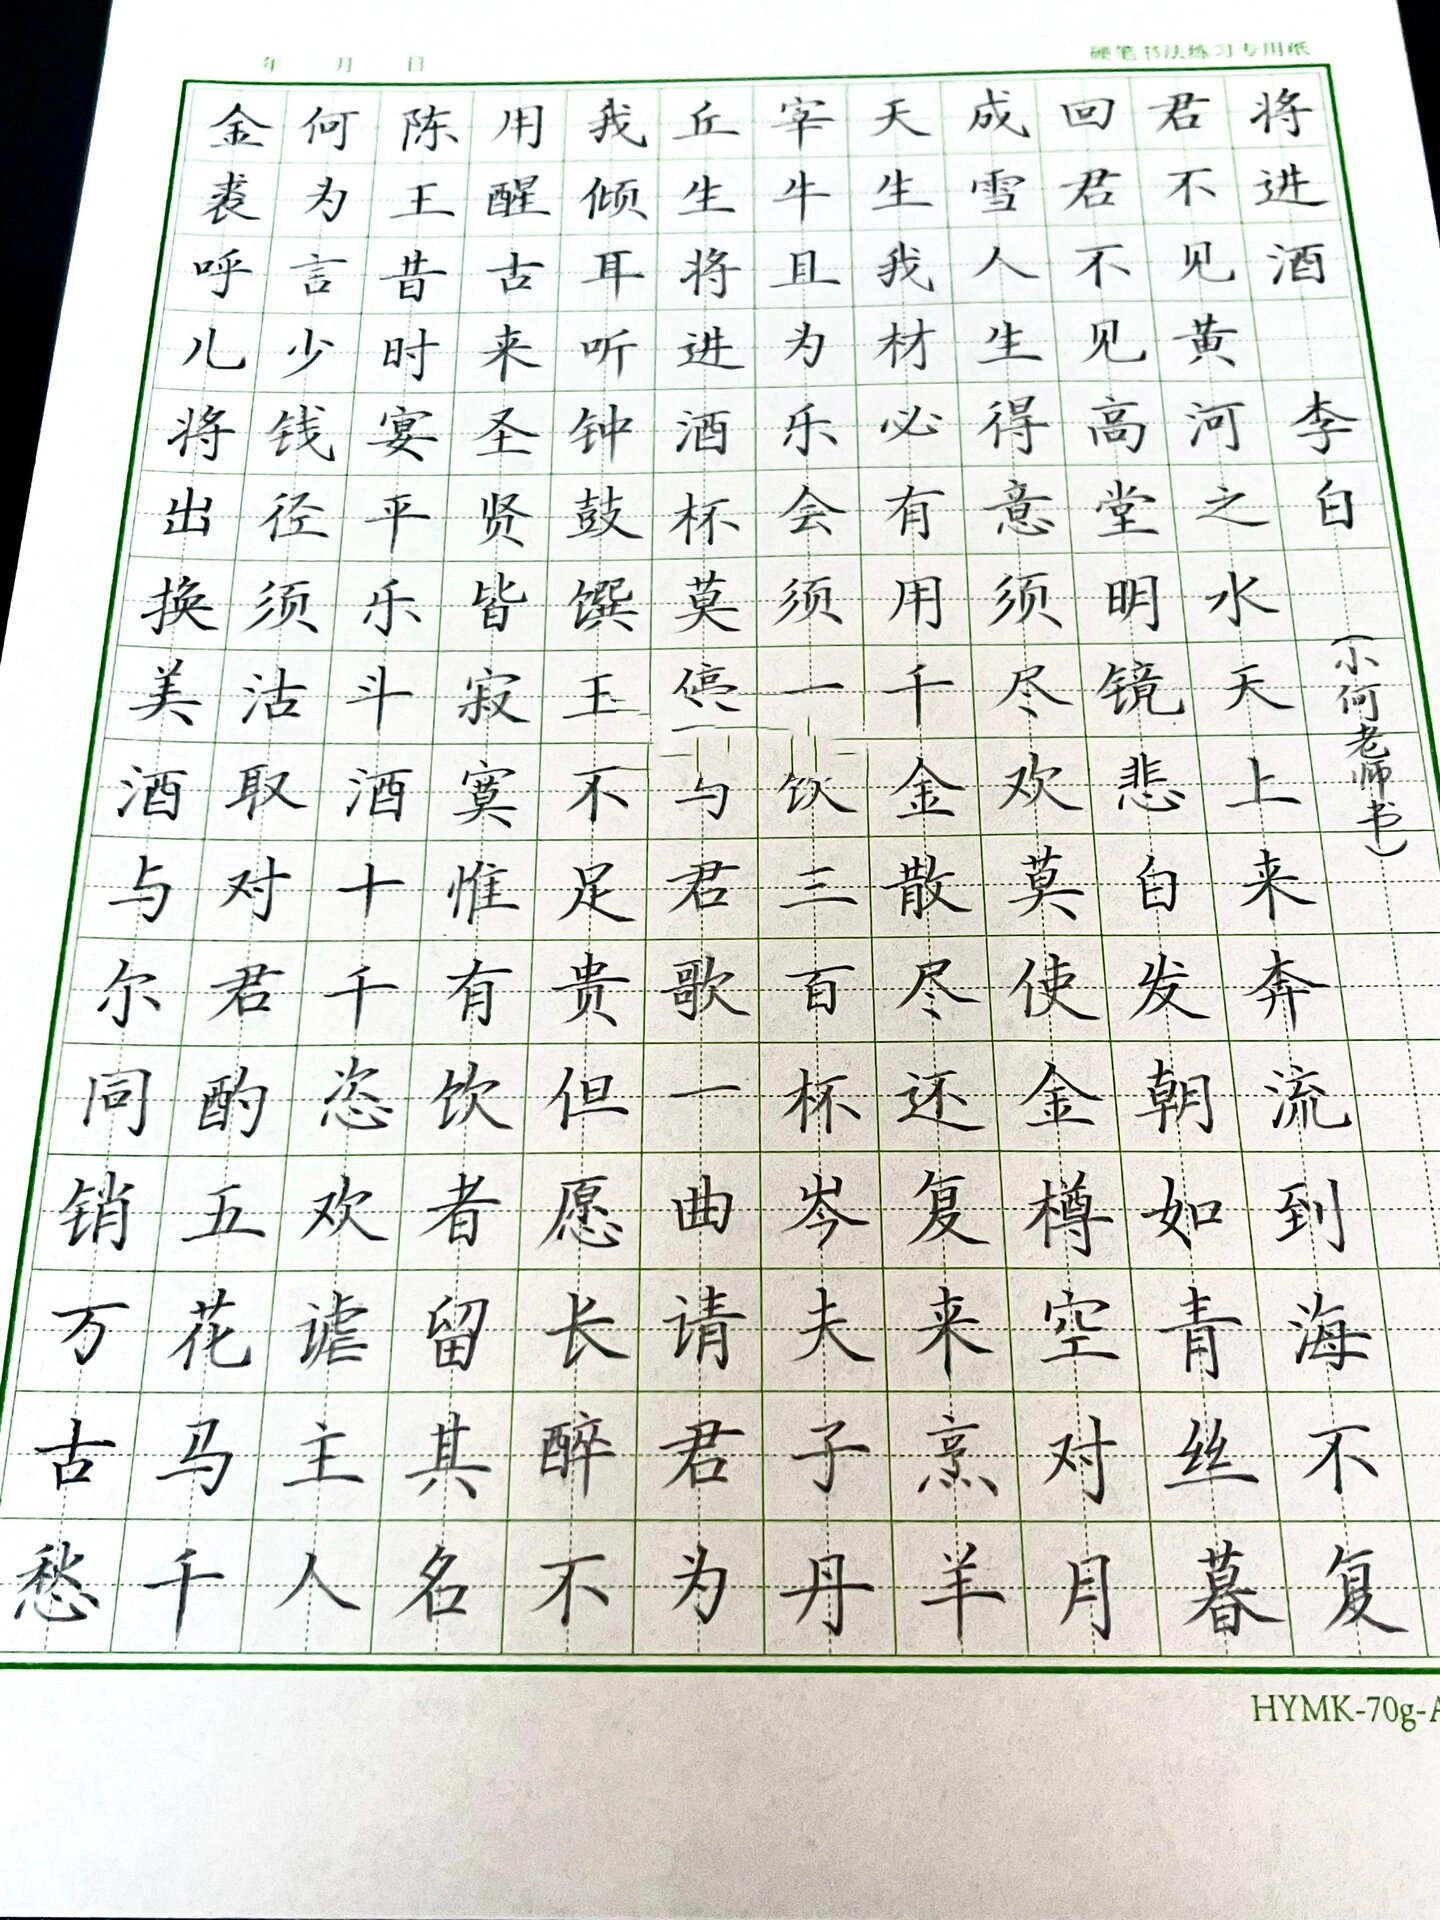 年 月 日
硬笔书法练习专用纸
将进酒 李白
(小何老师书)
君不见黄河之水天上来奔流到海不复
回君不见高堂明镜悲白发朝如青丝暮
成雪人生得意须尽欢莫使金樽空对月
天生我材必有用千金散尽还复来烹羊
宰牛且为乐会须一饮三百杯岑夫子丹
丘生将进酒杯莫停与君歌一曲请君为
我倾耳听钟鼓馔玉不足贵但愿长醉不
用醒古来圣贤皆寂寞惟有饮者留其名
陈王昔时宴平乐斗酒十千恣欢谑主人
何为言少钱径须沽取对君酌五花马千
金裘呼儿将出换美酒与尔同销万古愁
HYMK-70g-A